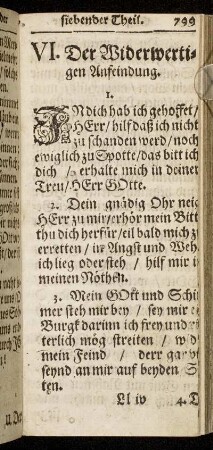 siebender Theil. 799
VI. Der Widerwerti-
gen Anfeindung.
1.
INdich hab ich gehoffet/
HErr/ hilf daß ich nicht
zu schanden werd/ noch
ewiglich zu Spotte/ das bitt ich
dich / erhalte mich in deiner
Treu/ HErr GOtte.
2. Dein gnädig Ohr neig
HErr zu mir/ erhör mein Bitt
thu dich herfür/ eil bald mich zu
erretten / in Angst und Weh
ich lieg oder steh / hilf mir i
meinen Nöthen.
3. Mein GOtt und Schi
mer steh mir bey / sey mir e
Burgk darinn ich frey und r
terlich mög streiten / w
mein Feind / derr gar
seynd an mir auf beyden S
ten.
Ll iv 4. D